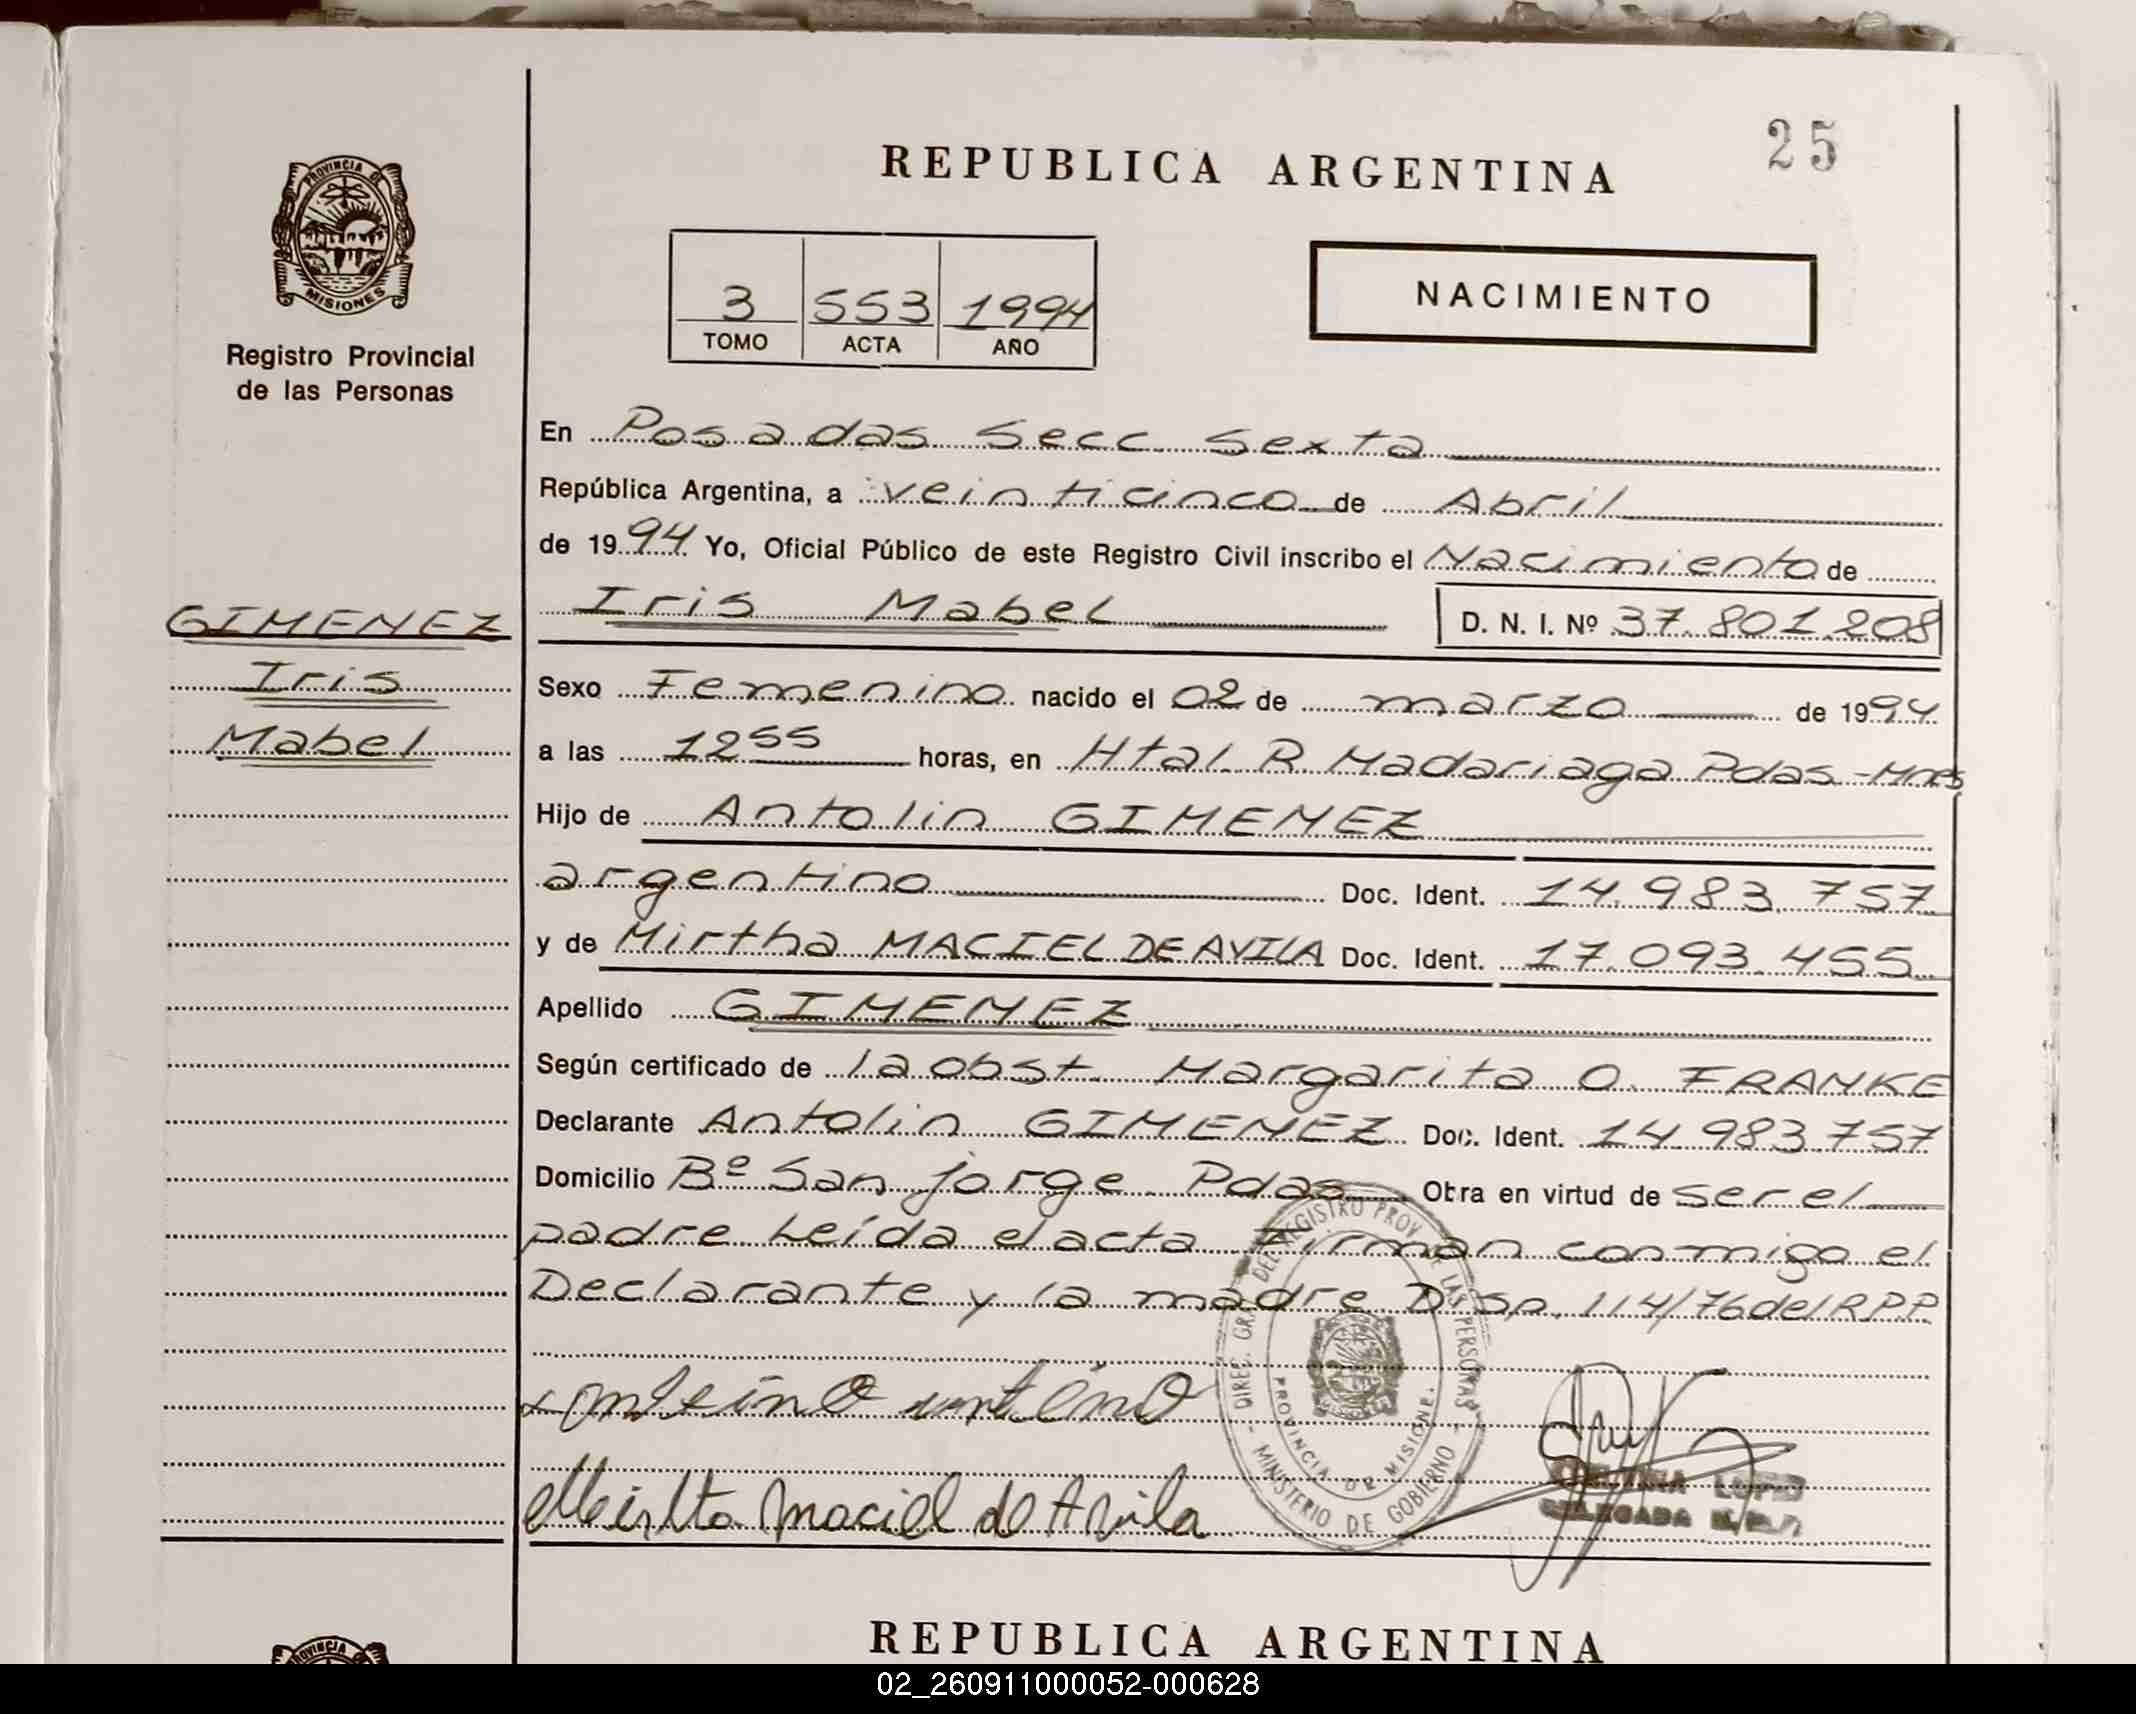 25
REPUBLICA ARGENTINA
PROVINCIA DE
MISIONES
Registro Provincial
de las Personas
3 553 1994
TOMO ACTA AÑO
NACIMIENTO
En Posadas Secc. Sexta
República Argentina, a veinticinco de Abril
de 1994 Yo, Oficial Público de este Registro Civil inscribo el Nacimiento de
Iris Mabel D. N. I. Nº 37.801.208
GIMENEZ
Iris
Mabel
Sexo Femenino nacido el 02 de marzo de 1994
a las 12 55 horas, en Htal. R. Madariaga Pdas-Mnes
Hijo de Antolin GIMENEZ
argentino Doc. Ident. 14.983.757
y de Mirtha MACIEL DE AVILA Doc. Ident. 17.093.455
Apellido GIMENEZ
Según certificado de la obst. Margarita O. FRANKE
Declarante Antolin GIMENEZ Doc. Ident. 14.983.757
Domicilio Bº San jorge Pdas Obra en virtud de ser el
padre Leída el acta Firman conmigo el
Declarante y la madre Disp. 114/76 del R.P.P
DIREC. GRAL DEL REGISTRO PROV. DE LAS PERSONAS
PROVINCIA DE MISIONES
MINISTERIO DE GOBIERNO
Maciel de Avila
REPUBLICA ARGENTINA
PROVINCIA
02_260911000052-000628